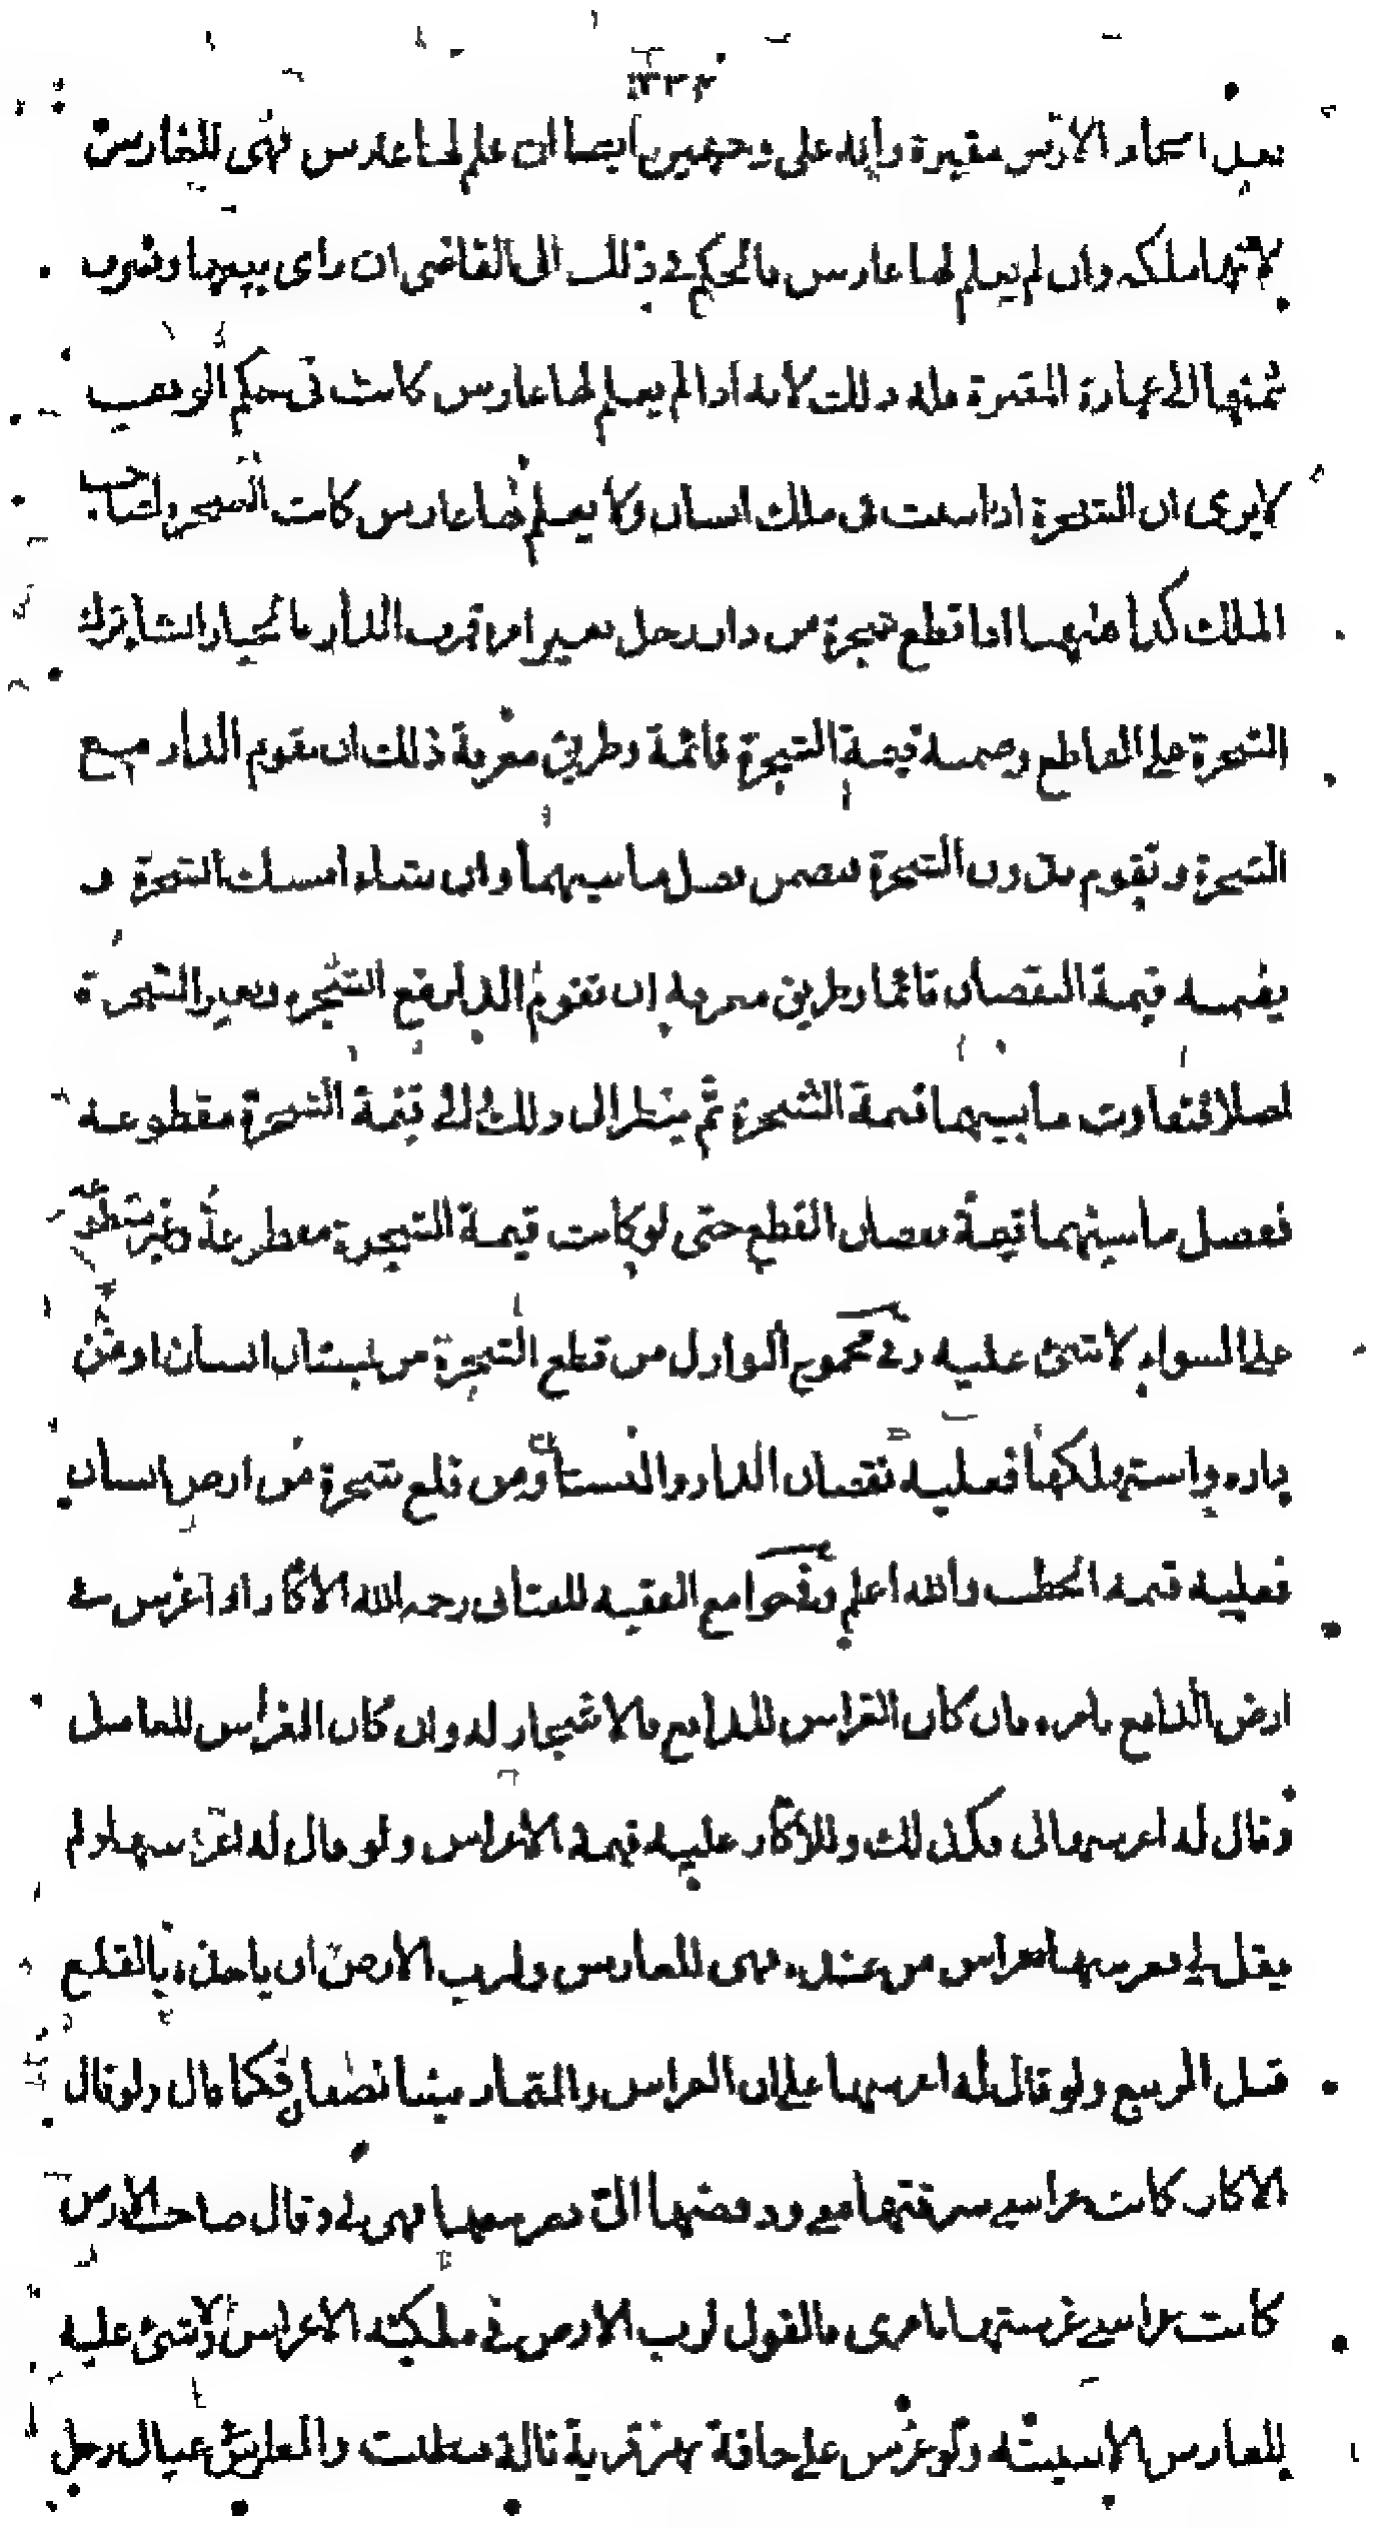 ١٣٣٤
الأرض مقبرة على وجهين ان علم لها غارس فهى للغارس
لانها ملكه وان لم يعلم لها غارس فالحكم فى ذلك الى القاضى ان راى بيعها وصرف
ثمنها الى عمارة المقبرة فله ذلك لانه اذا لم يعلم لها غارس كانت فى حكم الوقف
لا يرى ان الشجرة اذا نبتت فى ملك انسان ولا يعلم لها غارس كانت الشجرة لصاحب
الملك كذا اذا قطع شجرة من دار رجل بغير امره فرب الدار بالخيار ان شاء ترك
الشجرة على القاطع وضمنه قيمة الشجرة قائمة وطريق معرفة ذلك ان تقوم الدار مع
الشجرة وتقوم بدون الشجرة فيضمن فضل ما بينهما وان شاء امسك الشجرة و
يضمنه قيمة النقصان قائما وطريق معرفته ان تقوم الدار مع الشجرة وبغير الشجرة
فتفاوت ما بينهما قيمة الشجرة ثم ينظر الى ذلك والى قيمة الشجرة مقطوعة
ففضل ما بينهما قيمة نقصان القطع حتى لو كانت قيمة الشجرة مقطوعة وغير مقطوعة
على السواء لا شئ عليه وفى مجموع النوازل من قطع الشجرة من بستان انسان او من
داره واستهلكها فعليه نقصان الدار والبستان ومن قلع شجرة من ارض انسان
فعليه قيمة الحطب والله اعلم وفى جوامع الفقيه للعتابى رحمه الله الاكار اذا غرس فى
ارض الدافع بامره فان كان الغراس للدافع فالاشجار له وان كان الغراس للعامل
وقال له اغرسها لى فكذلك وللاكار عليه قيمة الاغراس ولو قال له اغرسها ولم
يقل لى فغرسها بغراس من عنده فهى للغارس ولرب الارض ان ياخذه بالقلع
قبل الربيع ولو قال له اغرسها على ان الغراس والثمار بيننا نصفان فكما قال ولو قال
الاكار كانت غراسى سرقتها منى فغرستها فهى لى وقال صاحب الارض
كانت غراسى غرستها بامرى فالقول لرب الارض فى ملكية الاغراس ولا شئ عليه
للغارس الا ببينته ولو غرس على حافة نهر قرية تالة فطلعت والغارس عيال رجل